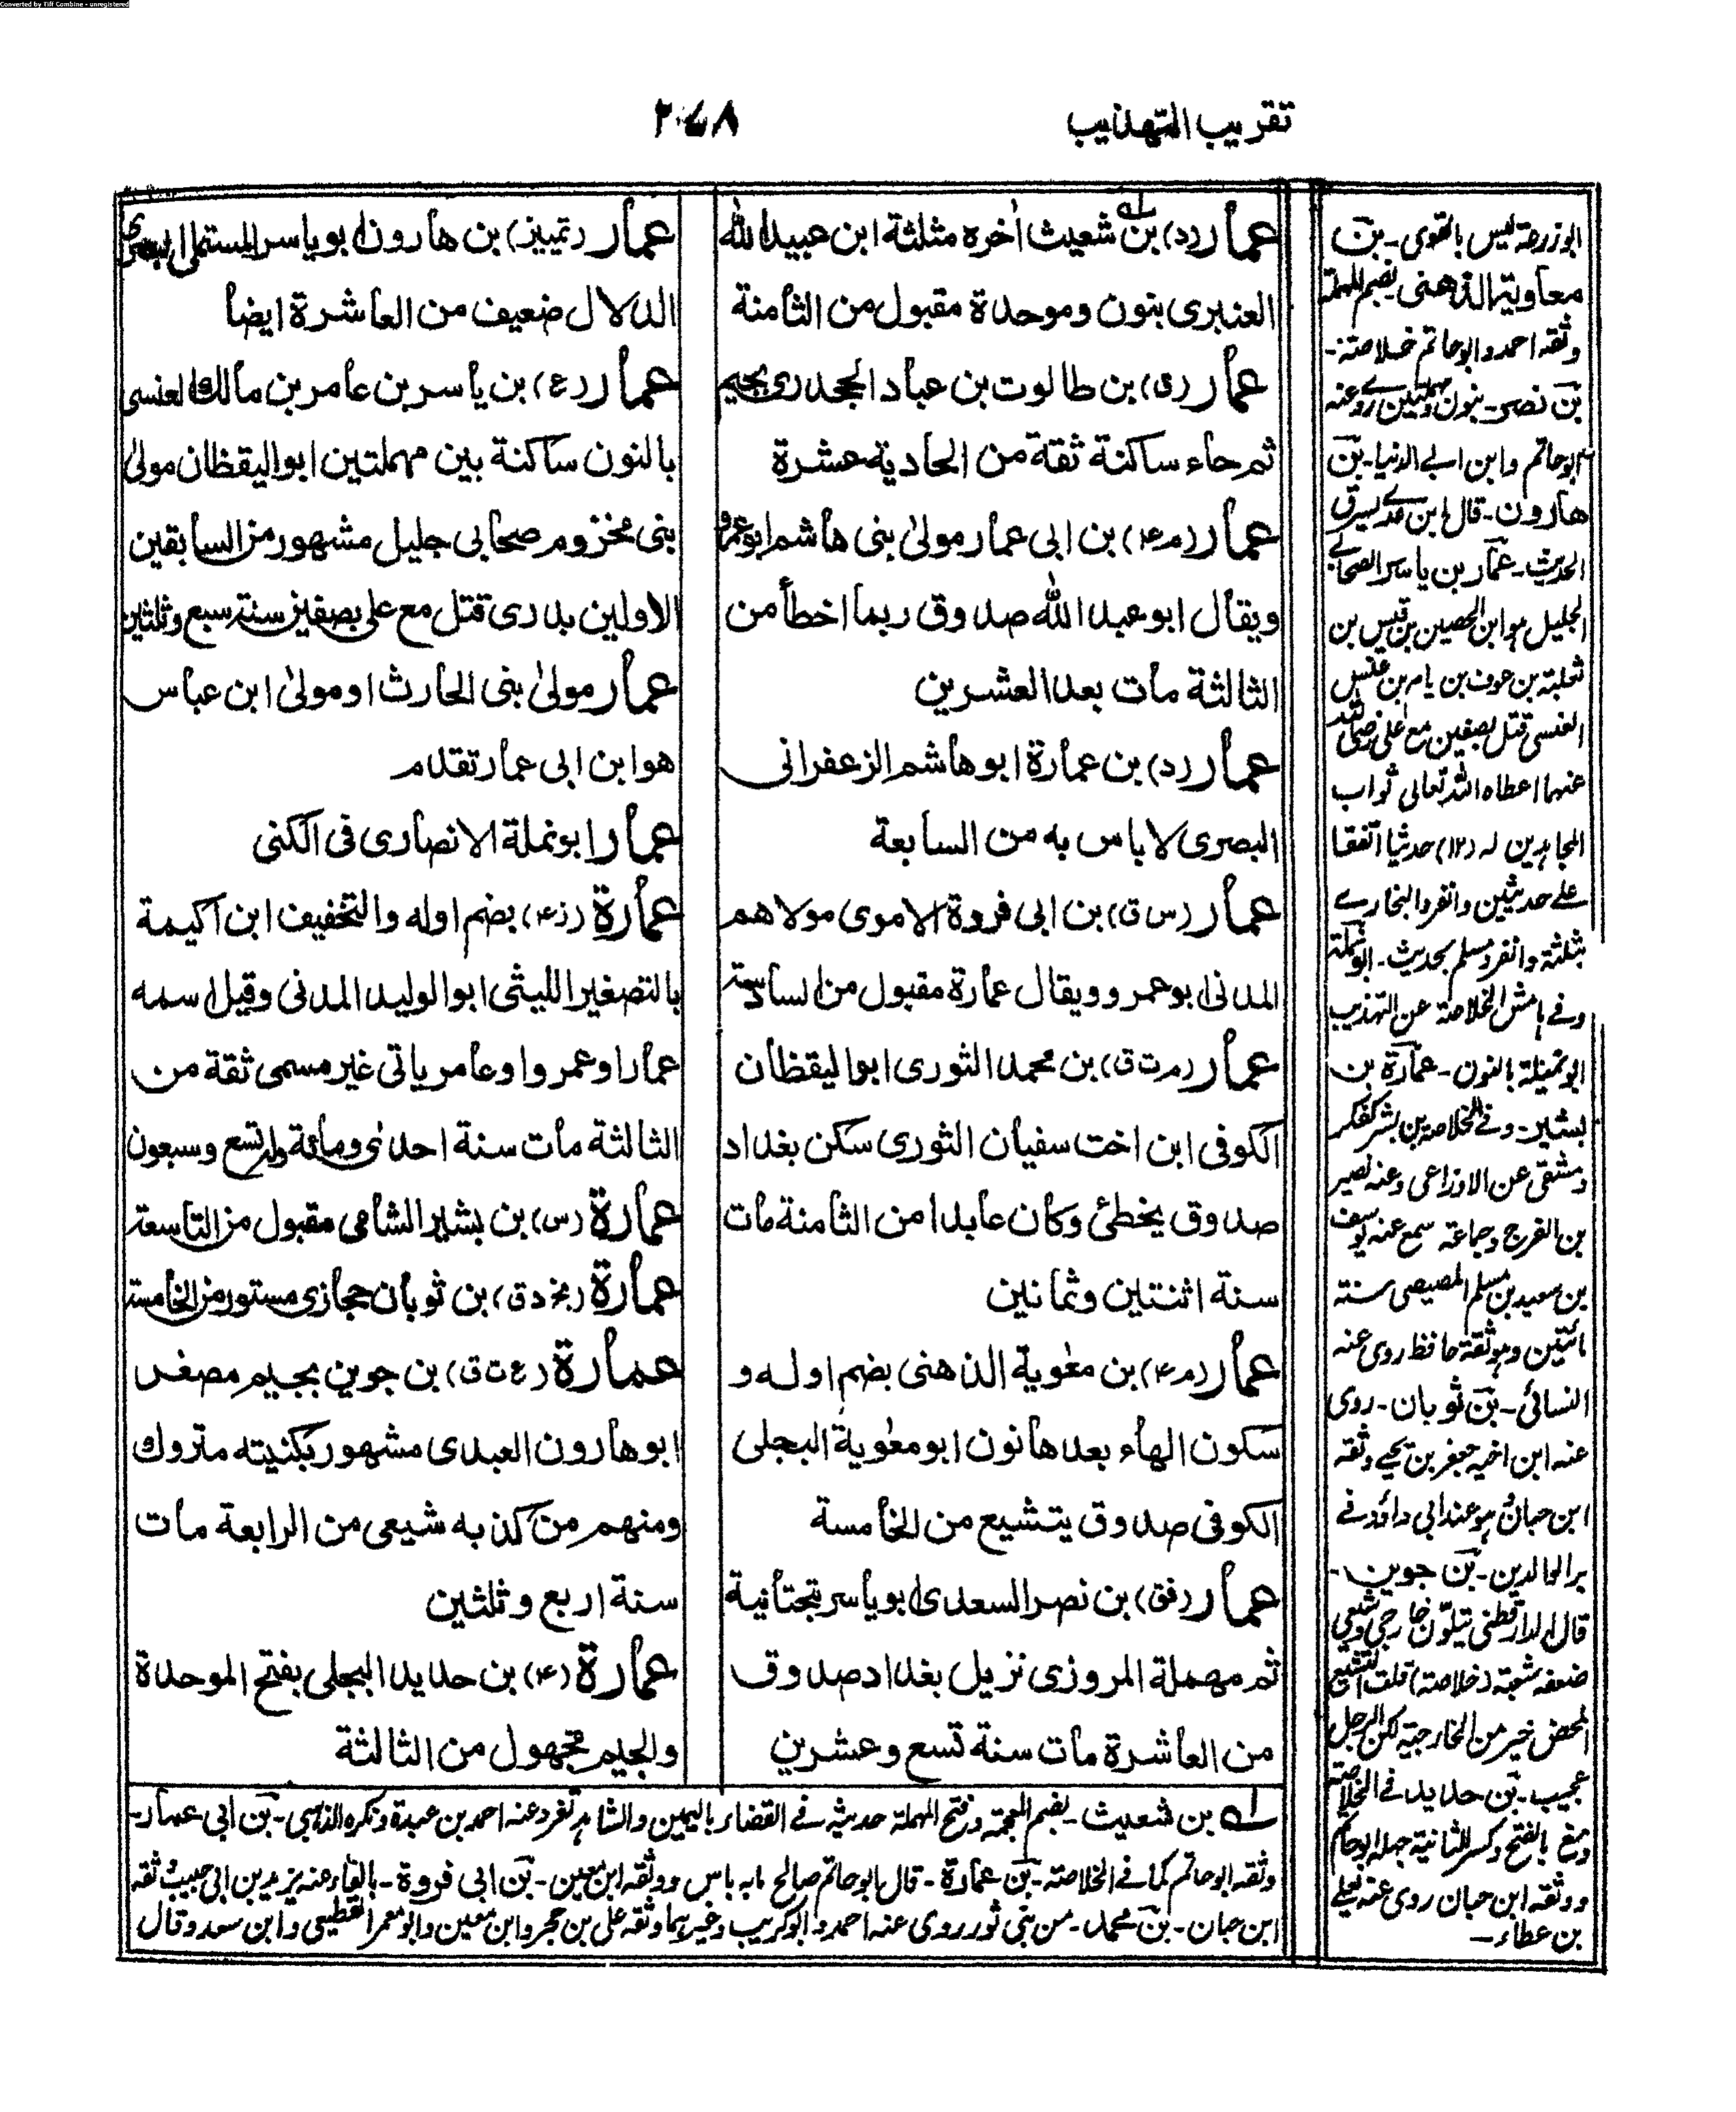 Converted by Tiff Combine - unregistered
تقريب التهذيب
٢٠٤٨
عمار (د) بن شعيث اخره مثلثة ابن عبيد الله
العنبرى بنون وموحدة مقبول من الثامنة
عمار (ق) بن طالوت بن عباد الجحدرى بجيم
ثم حاء ساكنة ثقة من الحادية عشرة
عمار (م ٤) بن ابى عمار مولىٰ بنى هاشم ابو عمرو
ويقال ابو عبد الله صدوق ربما اخطأ من
الثالثة مات بعد العشرين
عمار (د) بن عمارة ابو هاشم الزعفرانى
البصرى لا باس به من السابعة
عمار (س ق) بن ابى فروة الاموى مولاهم
المدنى ابو عمرو ويقال عمارة مقبول من السادسة
عمار (م ت ق) بن محمد الثورى ابو اليقظان
الكوفى ابن اخت سفيان الثورى سكن بغداد
صدوق يخطئ وكان عابدا من الثامنة مات
سنة اثنتين وثمانين
عمار (م ٤) بن معٰوية الذهنى بضم اوله و
سكون الهاء بعدها نون ابو معٰوية البجلى
الكوفى صدوق يتشيع من الخامسة
عمار (فق) بن نصر السعدى ابو ياسر بتحتانية
ثم مهملة المروزى نزيل بغداد صدوق
من العاشرة مات سنة تسع وعشرين
عمار (تمييز) بن هارون ابو ياسر المستملى البصرى
الدلال ضعيف من العاشرة ايضا
عمار (ع) بن ياسر بن عامر بن مالك العنسى
بالنون ساكنة بين مهملتين ابو اليقظان مولى
بنى مخزوم صحابى جليل مشهور من السابقين
الاولين بدرى قتل مع على بصفين سنة سبع وثلثين
عمار مولىٰ بنى الحارث او مولىٰ ابن عباس
هو ابن ابى عمار تقدم
عمار ابو نملة الانصارى فى الكنى
عمارة (ز ٤) بضم اوله والتخفيف ابن اكيمة
بالتصغير الليثى ابو الوليد المدنى وقيل اسمه
عمار او عمرو او عامر ياتى غير مسمى ثقة من
الثالثة مات سنة احدىٰ ومائة وله تسع وسبعون
عمارة (س) بن بشير الشامى مقبول من التاسعة
عمارة (بخ د ق) بن ثوبان حجازى مستور من الخامسة
عمارة (ع ت ق) بن جوين بجيم مصغر
ابو هارون العبدى مشهور بكنيته متروك
ومنهم من كذبه شيعى من الرابعة مات
سنة اربع وثلثين
عمارة (٤) بن حديد البجلى بفتح الموحدة
والجيم مجهول من الثالثة
ابو زرعة ليس بالقوى ـ بن
معاوية الذهنى بضم المهملة
وثقه احمد وابو حاتم خلاصة ـ
بن نصر ـ بنون ومهملتين روى عنه
ابو حاتم وابن ابى الدنيا ـ بن
هارون ـ قال ابن عدى يسرق
الحديث ـ عمار بن ياسر الصحابى
الجليل هو ابن الحصين بن قيس بن
ثعلبة بن عوف بن يام بن عنس
العنسى قتل بصفين مع على رضى الله
عنهما اعطاه الله تعالى ثواب
المجاهدين له (١٢) حديثا اتفقا
على حديثين وانفرد البخارى
بثلثة وانفرد مسلم بحديث ـ ابو نملة
وفى هامش الخلاصة عن التهذيب
ابو نميلة بالنون ـ عمارة بن
بشير ـ وفى الخلاصة بن بشر كفكر
دمشقى عن الاوزاعى وعنه نصير
بن الفرج وجماعة سمع عنه يوسف
بن سعيد بن مسلم المصيصى سنة
مائتين وموثقة حافظ روى عنه
النسائى ـ بن ثوبان ـ روى
عنه ابن اخيه جعفر بن يحيى وثقه
ابن حبان هو عند ابى داؤد فى
بر الوالدين ـ بن جوين ـ
قال الدارقطنى يتلوّن خارجى وشيعى
ضعفه شعبة (خلاصة) قلت التشيع
المحض خير من الخارجية لكن الرجل
عجيب ـ بن حديد فى الخلاصة
بالفتح وكسر الثانية جهله ابو حاتم
ووثقه ابن حبان روى عنه يعلى
بن عطاء ـ
له بن شعيث ـ بضم المعجمة وفتح المهملة حديثه فى القضاء باليمين والشاهد تفرد عنه احمد بن عبدة ونكره الذهبى ـ بن ابى عمار ـ
وثقه ابو حاتم كما فى الخلاصة ـ بن عمارة ـ قال ابو حاتم صالح ما به باس ووثقه ابن معين ـ بن ابى فروة ـ بالفاء عنه يزيد بن ابى حبيب وثقه
ابن حبان ـ بن محمد ـ من بنى ثور روى عنه احمد وابو كريب وغيرهما وثقه على بن حجر وابن معين وابو معمر القطيعى وابن سعد وقال